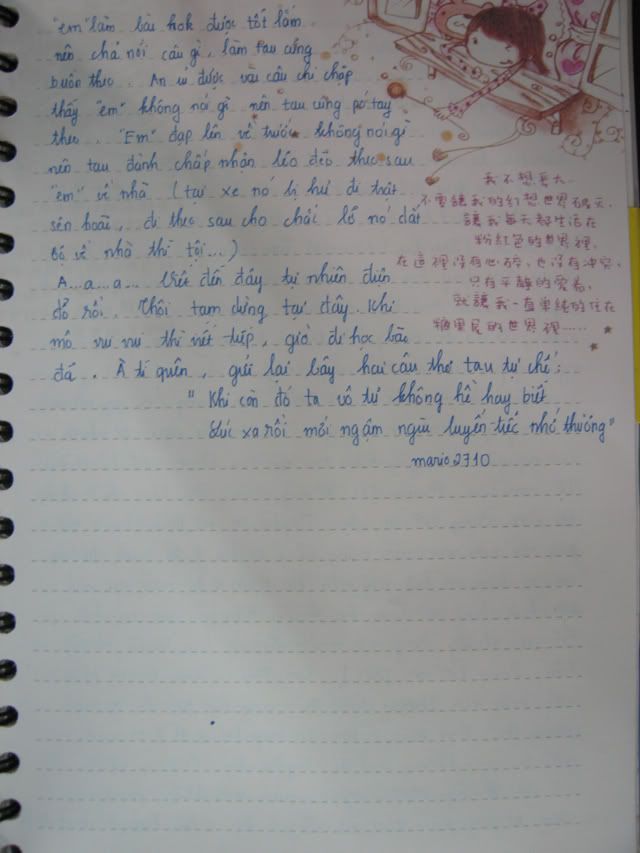 "em" làm bài hok được tốt lắm
nên chả nói câu gì, làm tau cũng
buồn theo. An ủi được vài câu chi chập
thấy "em" không nói gì nên tau cũng pó tay
theo. "Em" đạp lên về trước không nói gì
nên tau đành chấp nhận lẽo đẽo theo sau
"em" về nhà (tại xe nó bị hư đi trật
sên hoài, đi theo sau cho chắc lỡ nó dắt
bộ về nhà thì tội...)
A...a...a... Viết đến đây tự nhiên điên
đổ rồi. Thôi tạm dừng tại đây. Khi
mô vui vui thì viết tiếp, giờ đi học bài
đã. À tí quên, gửi lại bây hai câu thơ tau tự chế:
" Khi còn đó ta vô tư không hề hay biết
Lúc xa rồi mới ngậm ngùi luyến tiếc nhớ thương"
mario2710
我不想長大..
不要讓我的幻想世界破滅,
讓我每天都生活在
粉紅色的世界裡,
在這裡沒有心碎,也沒有沖突,
只有平靜的愛着,
就讓我一直單純的住在
糖果屋的世界裡......